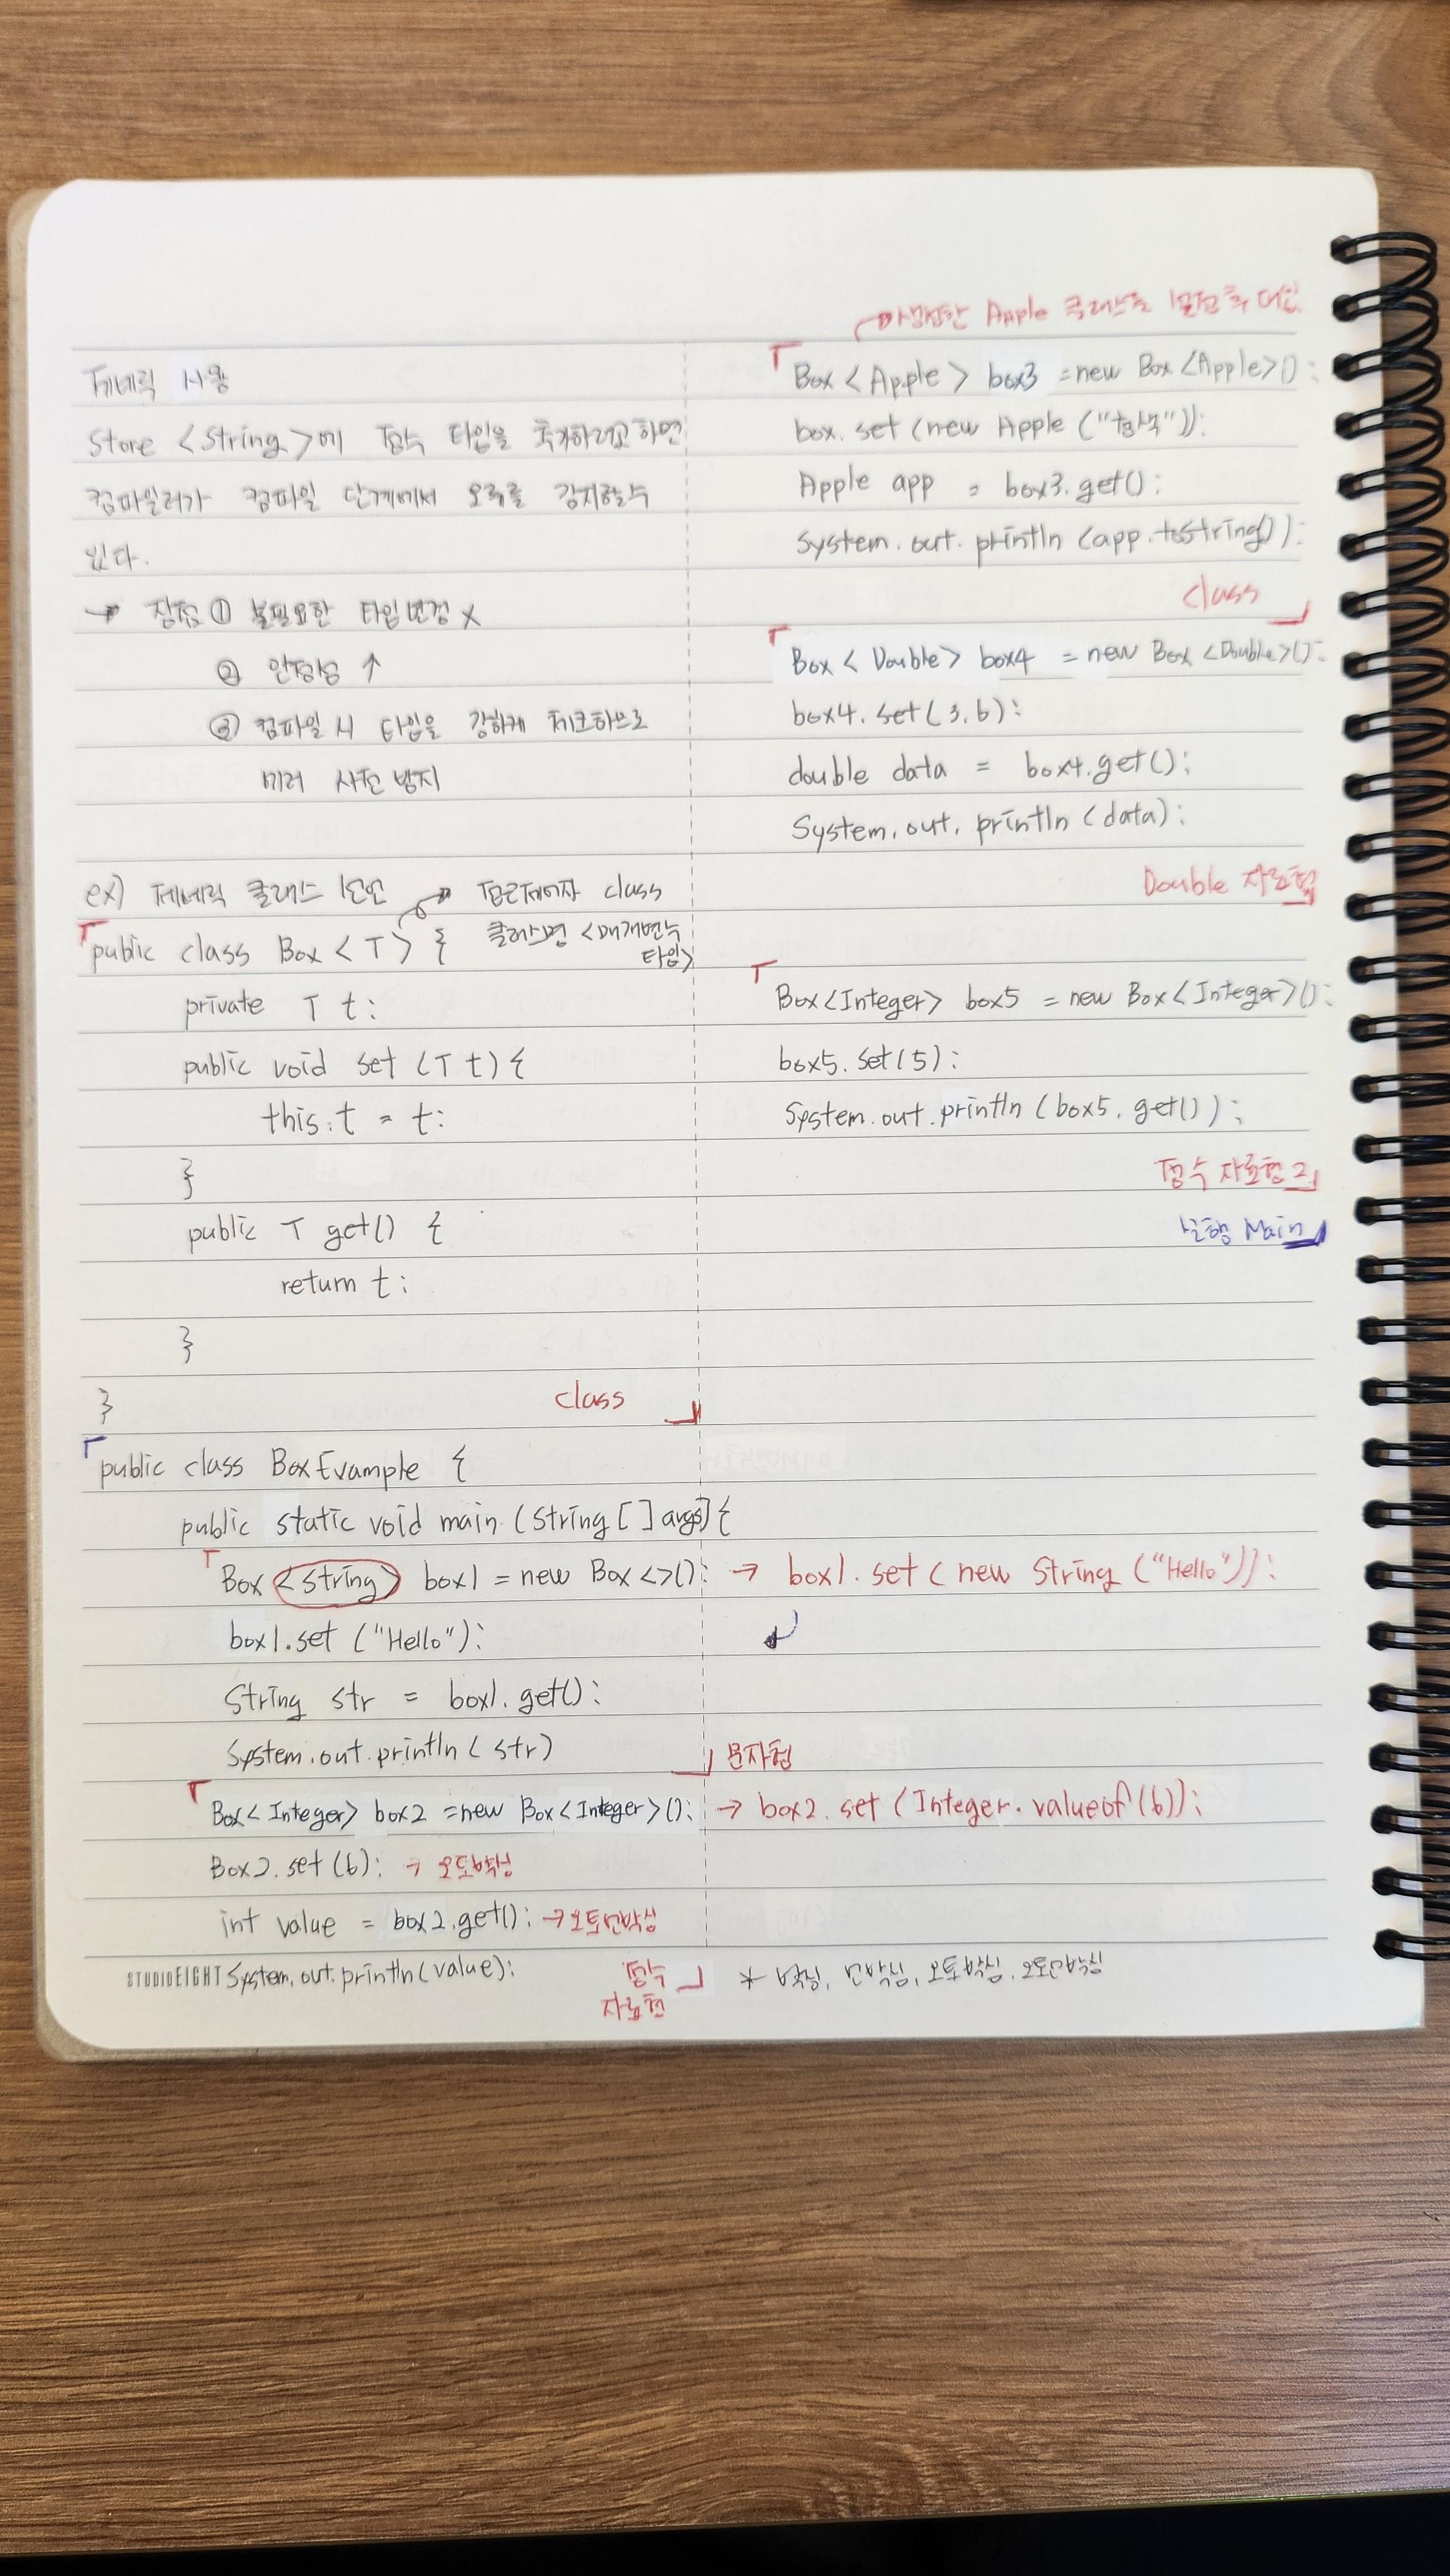 제네릭 사용
Store <String>에 정수 타입을 추가하려고하면
컴파일러가 컴파일 단계에서 오류를 감지할수
있다.
→ 장점 ① 불필요한 타입변경 X
② 안정성 ↑
③ 컴파일시 타입을 강하게 체크하므로
미리 사전 방지
ex) 제네릭 클래스 선언 → 접근제어자 class
클래스명 <매개변수
타입>
public class Box <T> {
private T t:
public void set (T t) {
this.t = t:
}
public T get() {
return t:
}
}
class
public class BoxExample {
public static void main (String [] args) {
Box <String> box1 = new Box<>(): → box1.set ( new String ("Hello")):
box1.set ("Hello"):
String str = box1.get():
System.out.println (str)
문자형
Box<Integer> box2 = new Box<Integer>(): → box2.set (Integer.valueof (6)):
Box2.set (6): → 오토박싱
int value = box2.get(): → 오토언박싱
STUDIOEIGHT System.out.println(value):
정수
자료형
* 박싱, 언박싱, 오토박싱, 오토언박싱
Apple 클래스를
Box <Apple> box3 = new Box <Apple>():
box.set (new Apple (" ")):
Apple app = box3.get():
System.out.println (app.toString()):
class
Box <Double> box4 = new Box <Double>():
box4.set(3.6):
double data = box4.get():
System.out.println (data):
Double 자료형
Box<Integer> box5 = new Box<Integer>():
box5.set(5):
System.out.println (box5.get()):
정수 자료형 2
실행 Main